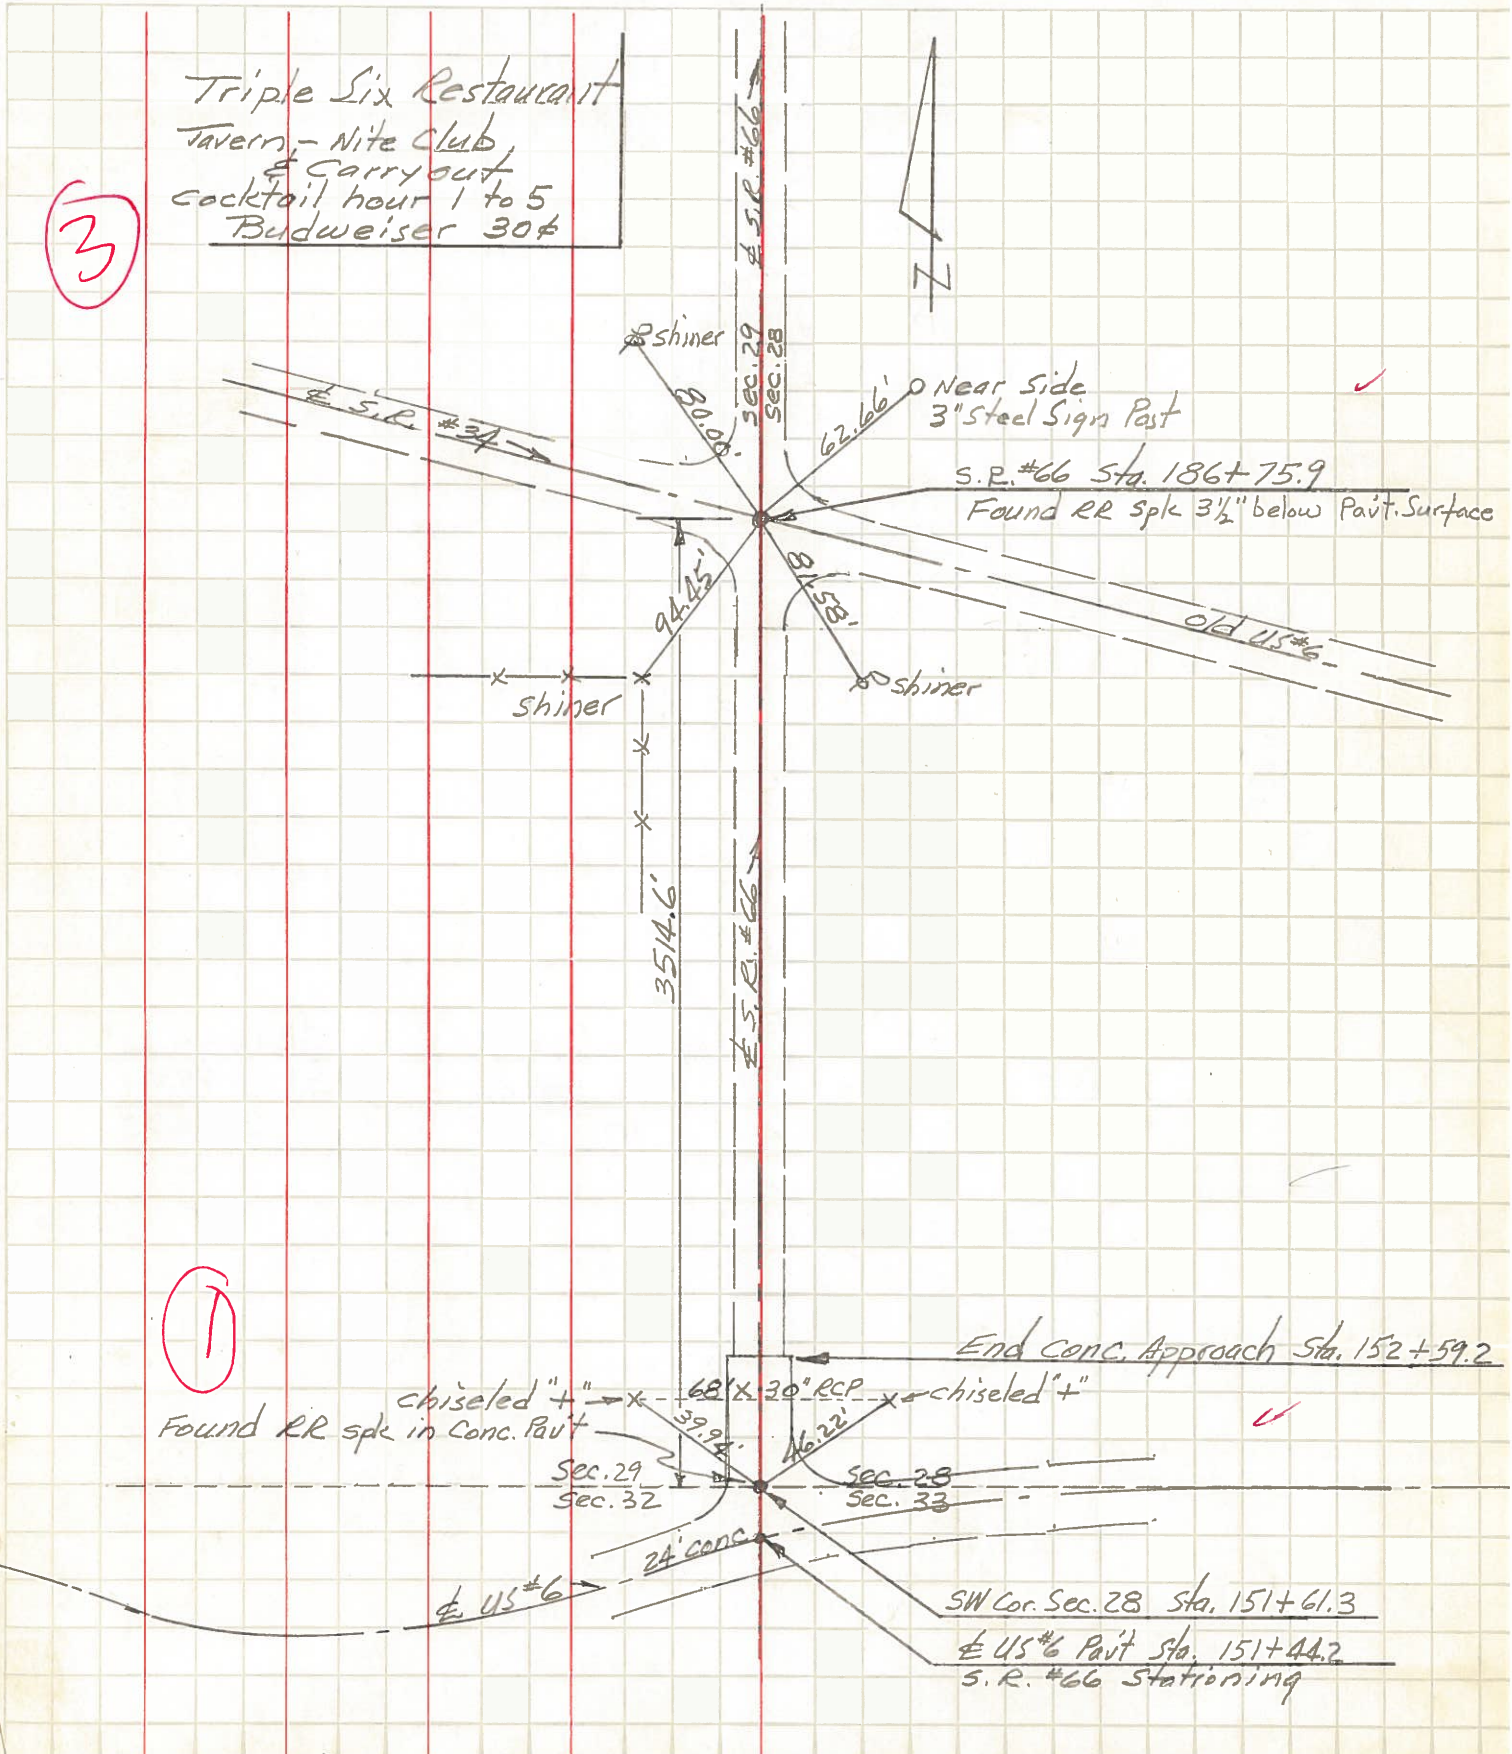 Triple Six Restaurant
Tavern - Nite Club,
& Carryout
cocktail hour 1 to 5
Budweiser 30¢
3
℄ S.R. #66
N
Sec. 29
Sec. 28
shiner
80.00'
62.66'
Near Side
3" Steel Sign Post
℄ S.R. #34
S.R. #66 Sta. 186+75.9
Found RR spk 3½" below Pav't. Surface
94.45'
81.58'
Old US #6
shiner
shiner
3514.6'
℄ S.R. #66
1
End Conc. Approach Sta. 152+59.2
chiseled "+"
68' X 30" RCP
chiseled "+"
Found RR spk in Conc. Pav't
39.94'
46.22'
Sec. 29
Sec. 28
Sec. 32
Sec. 33
24' conc.
℄ US #6
SW Cor. Sec. 28 Sta. 151+61.3
℄ US #6 Pav't Sta. 151+44.2
S.R. #66 Stationing